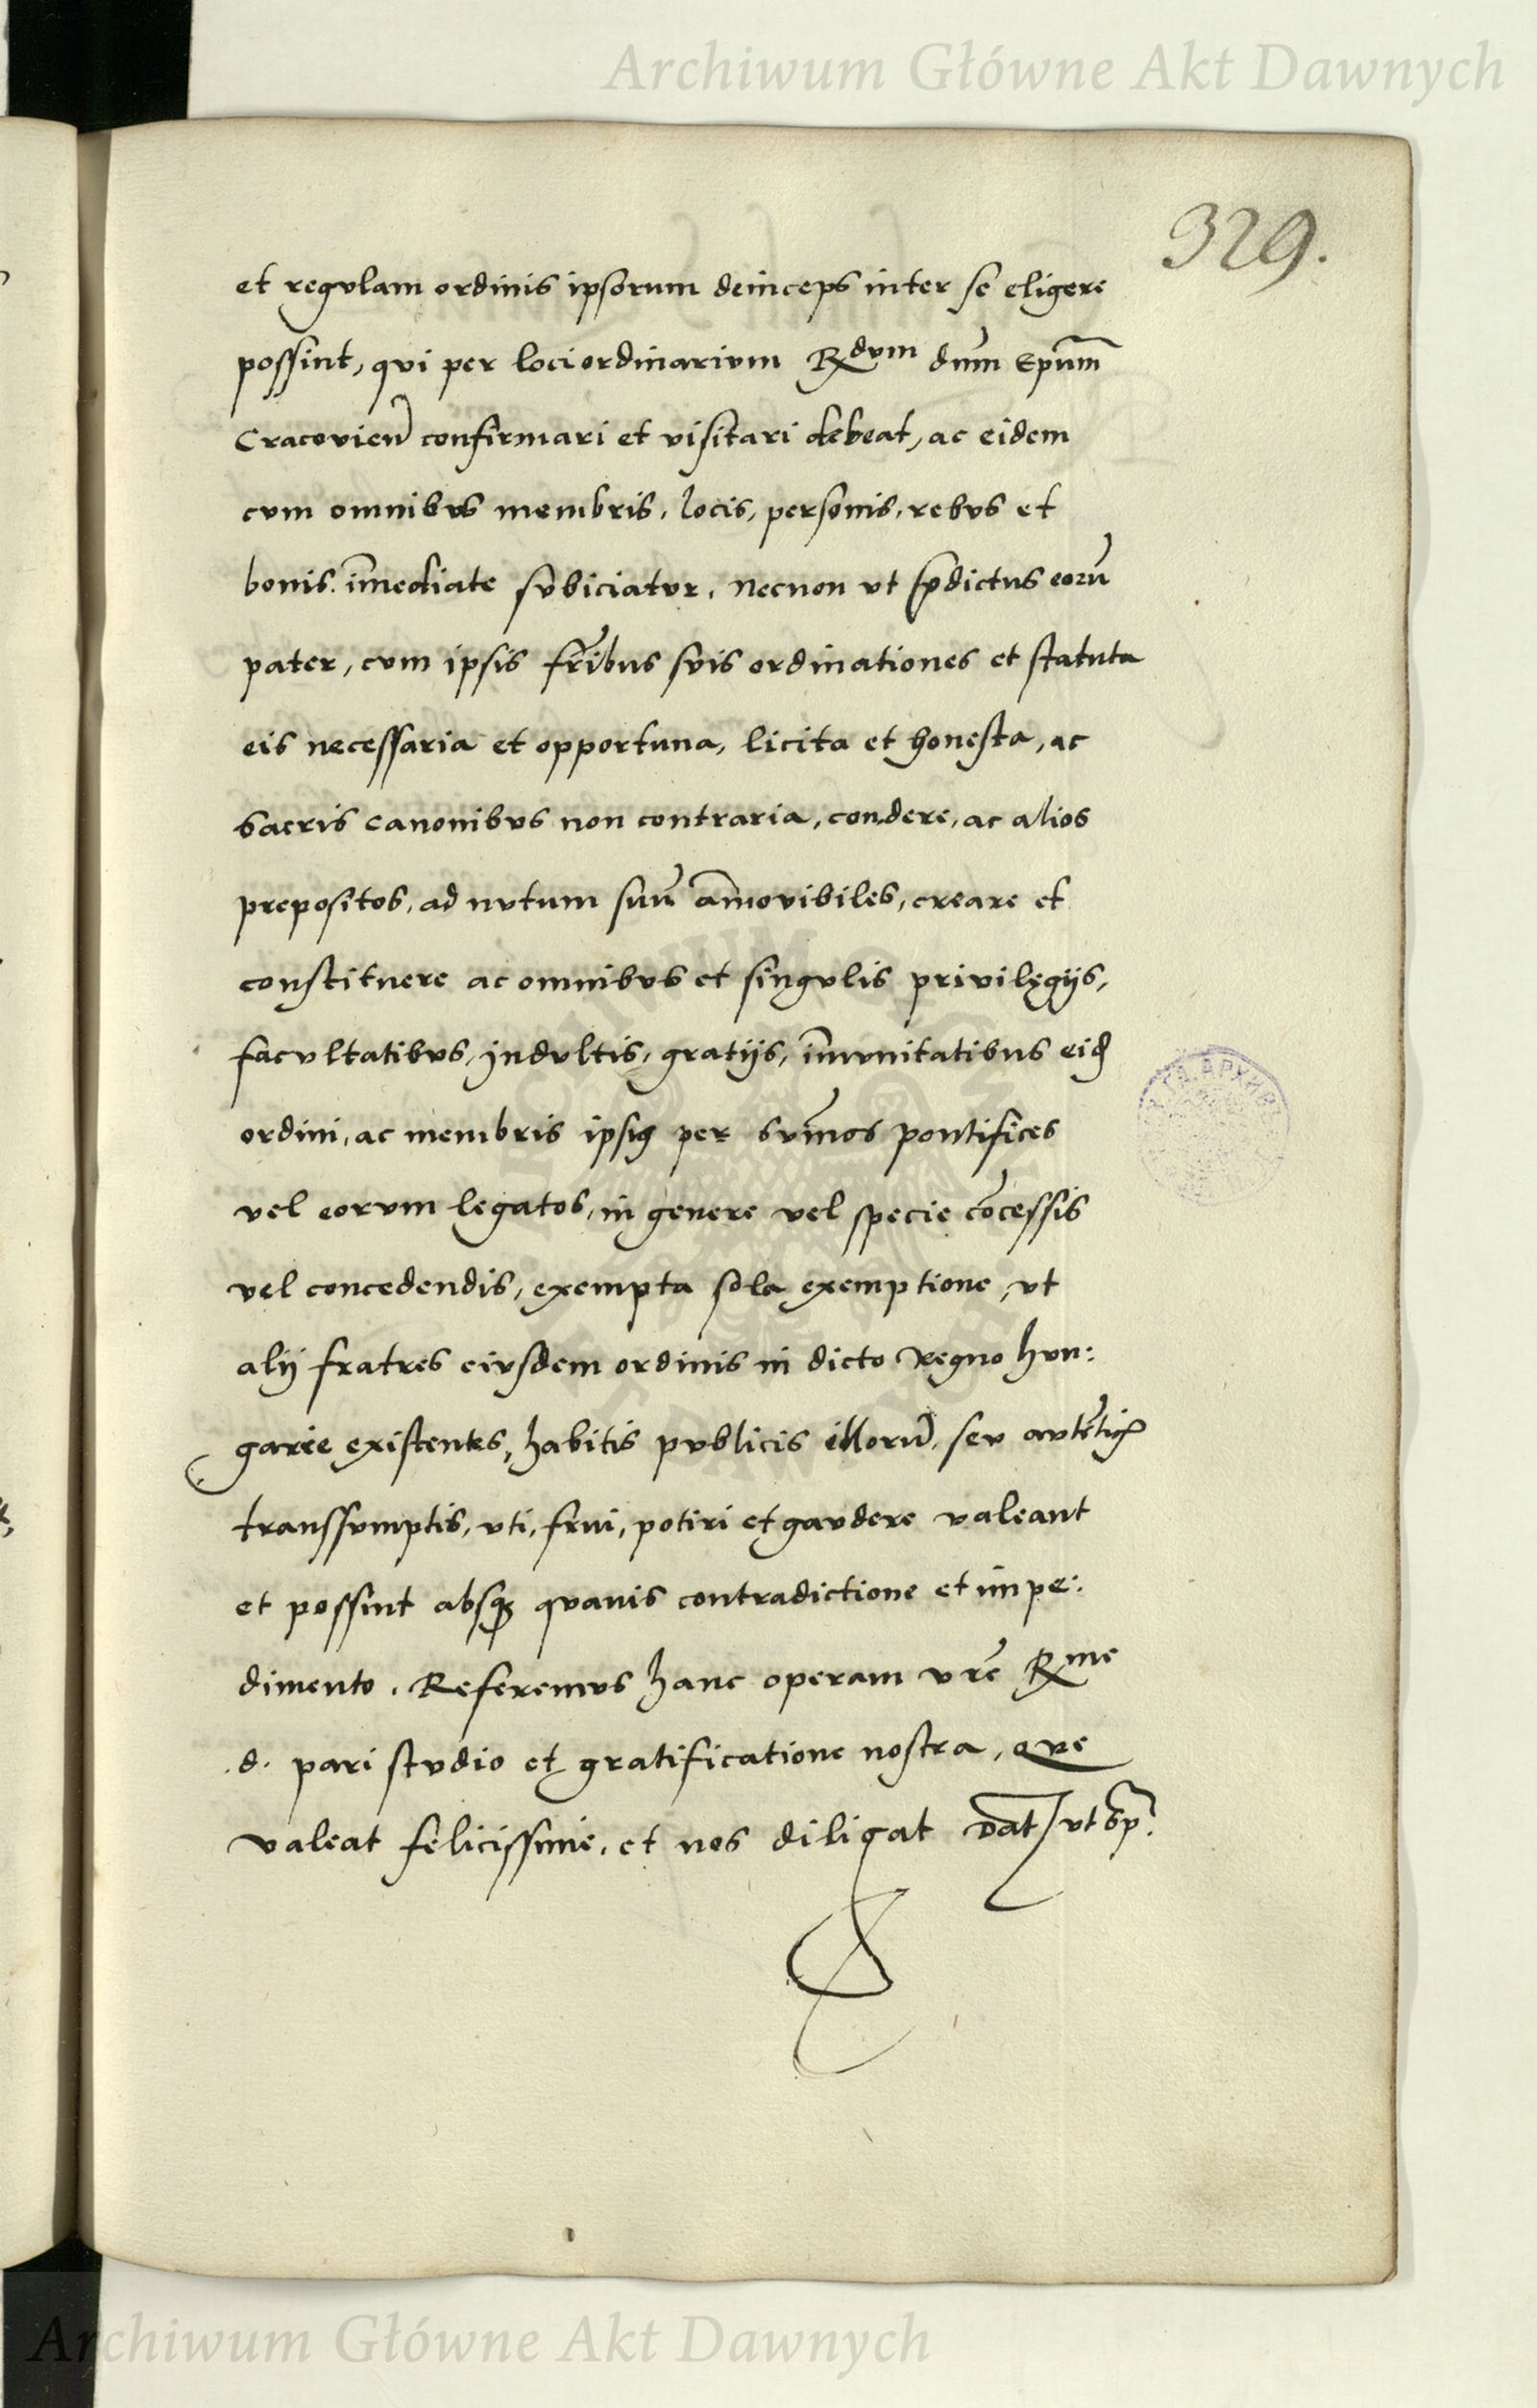 Archiwum Główne Akt Dawnych
329.
et regvlam ordinis ipsorum deinceps inter se eligere
possint, qvi per loci ordinarivm R^dvm dnm Epum
Cracovien confirmari et visitari debeat, ac eidem
cvm omnibvs membris, locis, personis, rebvs et
bonis. imediate svbiciatvr, necnon vt pdictus eorū
pater, cvm ipsis fribus svis ordinationes et statuta
eis necessaria et opportuna, licita et honesta, ac
sacris canonibvs non contraria, condere, ac alios
prepositos, ad nvtum suū amovibiles, creare et
constituere ac omnibvs et singvlis privilegijs,
facvltatibvs, indvltis, gratijs, imvnitatibus eid
ordini, ac membris ipsi9 per svmos pontifices
vel eorvm legatos, in genere vel specie cōcessis
vel concedendis, exempta sola exemptione, vt
alij fratres eivsdem ordinis in dicto Regno hvn:
garie existentes, habitis pvblicis illorū, sev avtētic
transsvmptis, vti, frui, potiri et gavdere valeant
et possint absq3 qvavis contradictione et impe:
dimento. Referemvs hanc operam vrē R^me
.d. pari stvdio et gratificatione nostra, qve
valeat felicissime, et nos diligat Dat vt sp.
Archiwum Główne Akt Dawnych